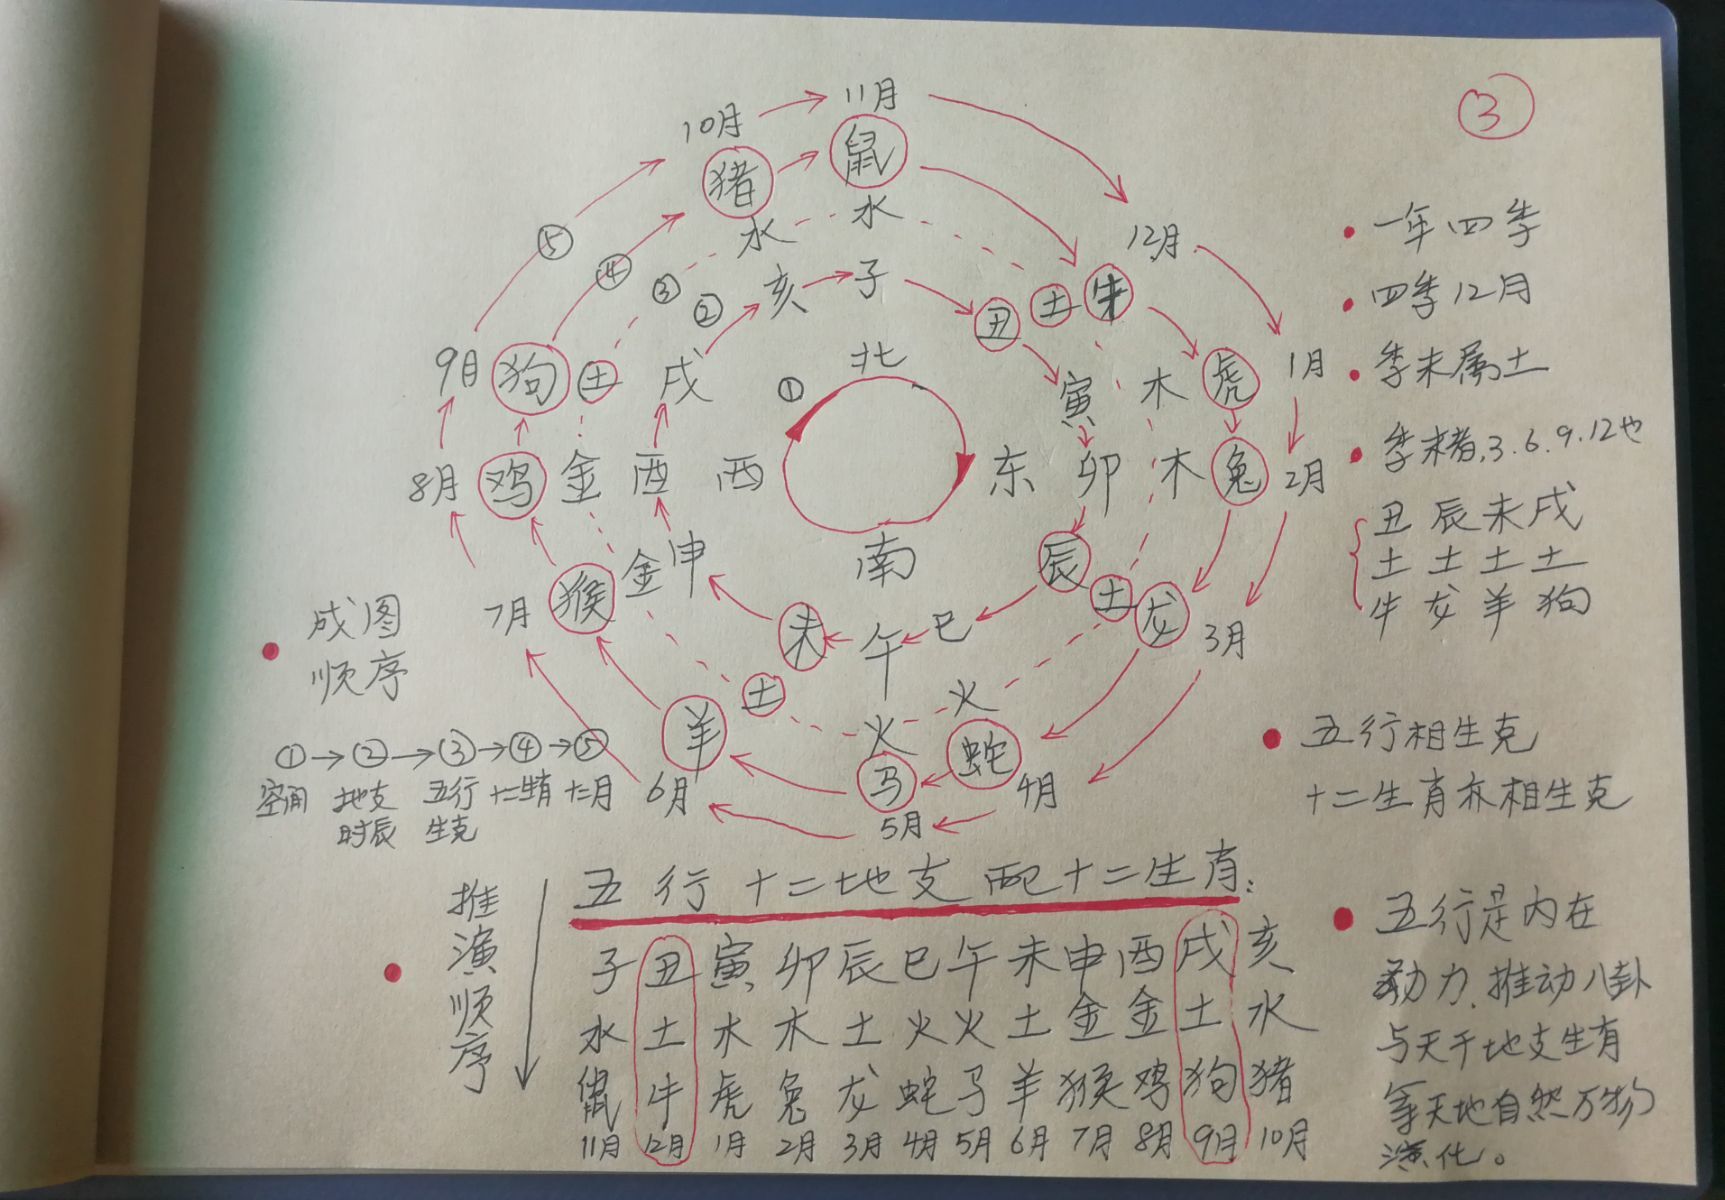 ③
11月
10月
鼠
猪
水
水
12月
⑤
④
③
②
亥
子
丑
土
牛
9月
狗
土
戌
①
北
寅
木
虎
1月
8月
鸡
金
酉
西
东
卯
木
兔
2月
南
7月
猴
金
申
辰
土
龙
3月
未
午
巳
土
羊
火
火
6月
马
蛇
5月
4月
一年四季
四季12月
季末属土
季末者,3.6.9.12也
丑 辰 未 戌
土 土 土 土
牛 龙 羊 狗
成图
顺序
①→②→③→④→⑤
空间 地支 五行 十二生肖 十二月
时辰 生克
五行相生克
十二生肖亦相生克
五行十二地支配十二生肖:
推演顺序
子 丑 寅 卯 辰 巳 午 未 申 酉 戌 亥
水 土 木 木 土 火 火 土 金 金 土 水
鼠 牛 虎 兔 龙 蛇 马 羊 猴 鸡 狗 猪
11月 12月 1月 2月 3月 4月 5月 6月 7月 8月 9月 10月
五行是内在
动力,推动八卦
与天干地支生肖
等天地自然万物
演化。